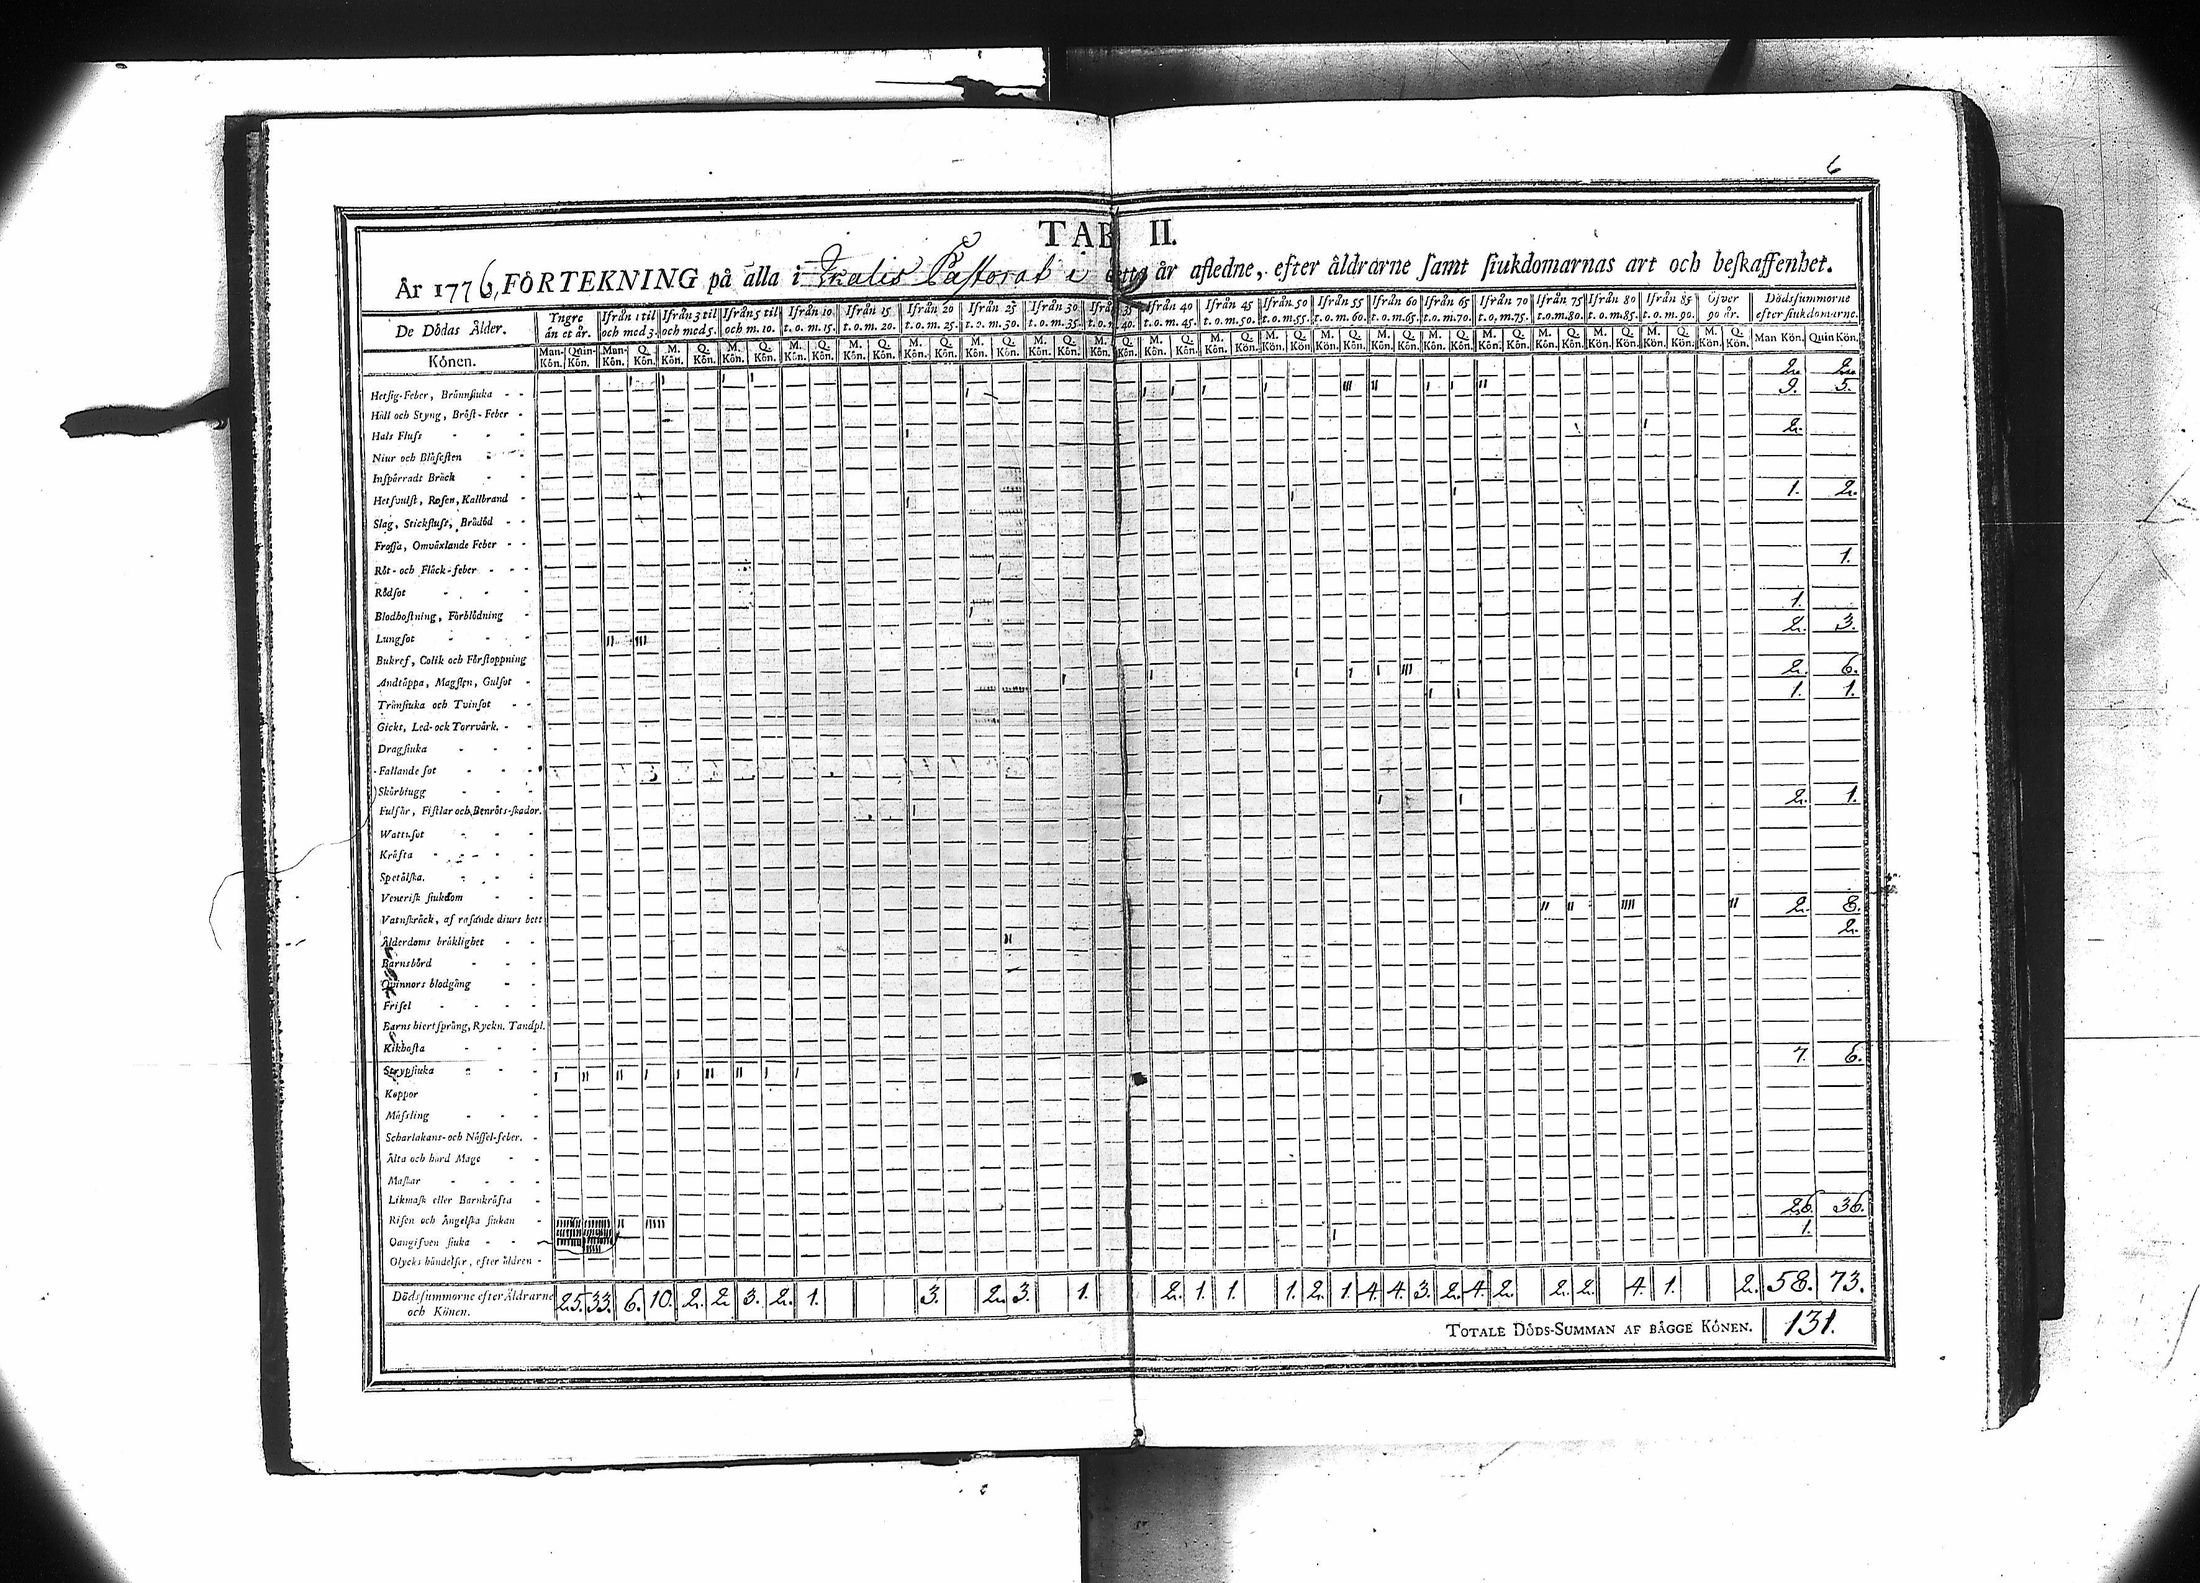 6
TAB II.
År 1776, FÖRTEKNING på alla i Pastorat i detta år afledne, efter åldrarne samt siukdomarnas art och beskaffenhet.
De Dödas Ålder. Yngre än et år. Ifrån 1 til och med 3. Ifrån 3 til och med 5. Ifrån 5 til och m. 10. Ifrån 10 t. o. m. 15. Ifrån 15 t. o. m. 20. Ifrån 20 t. o. m. 25. Ifrån 25 t. o. m. 30. Ifrån 30 t. o. m. 35. Ifrån 35 t. o. m. 40. Ifrån 40 t. o. m. 45. Ifrån 45 t. o. m. 50. Ifrån 50 t. o. m. 55. Ifrån 55 t. o. m. 60. Ifrån 60 t. o. m. 65. Ifrån 65 t. o. m. 70. Ifrån 70 t. o. m. 75. Ifrån 75 t. o. m. 80. Ifrån 80 t. o. m. 85. Ifrån 85 t. o. m. 90. Öfver 90 år. Dödssummorne efter siukdomarne.
Könen. Man-Kön. Quin-Kön. Man-Kön. Q. Kön. M. Kön. Q. Kön. M. Kön. Q. Kön. M. Kön. Q. Kön. M. Kön. Q. Kön. M. Kön. Q. Kön. M. Kön. Q. Kön. M. Kön. Q. Kön. M. Kön. Q. Kön. M. Kön. Q. Kön. M. Kön. Q. Kön. M. Kön. Q. Kön. M. Kön. Q. Kön. M. Kön. Q. Kön. M. Kön. Q. Kön. M. Kön. Q. Kön. M. Kön. Q. Kön. M. Kön. Q. Kön. M. Kön. Q. Kön. M. Kön. Q. Kön. Man Kön. Quin Kön.
2. 2.
Hetsig-Feber, Brännsiuka 9. 5.
Håll och Styng, Bröst-Feber
Hals Fluss 2.
Niur och Blåsesten
Inspärradt Bråck
Hetsvulst, Rosen, Kallbrand 1. 2.
Slag, Stickfluss, Brådöd
Frossa, Omväxlande Feber
Röt- och Fläck-feber 1.
Rödsot
Blodhostning, Förblödning 1.
Lungsot 2. 3.
Bukref, Colik och Förstoppning
Andtäppa, Magsten, Gulsot 2. 6.
Trånsiuka och Tvinsot 1. 1.
Gickt, Led- och Torrvärk.
Dragsiuka
Fallande sot
Skörbiugg
Fulsår, Fistlar och Benröts-skador. 2. 1.
Wattusot
Kräfta
Spetälska.
Venerisk siukdom
Vatnskräck, af rasande diurs bett 2. 8.
Ålderdoms bräklighet 2.
Barnsbörd
Qvinnors blodgång
Frisel
Barns hiertsprång, Ryckn. Tandpl.
Kikhosta
Strypsiuka 7. 6.
Koppor
Mässling
Scharlakans- och Nässel-feber.
Älta och hård Mage
Maskar
Likmask eller Barnkräfta
Risen och Ängelska siukan 26. 36.
Oangifven siuka 1.
Olycks händelser, efter åldren
Dödssummorne efter Åldrarne och Könen. 25. 33. 6. 10. 2. 2. 3. 2. 1. 3. 2. 3. 1. 2. 1. 1. 1. 2. 1. 4. 4. 3. 2. 4. 2. 2. 2. 4. 1. 2. 58. 73.
TOTALE DÖDS-SUMMAN AF BÄGGE KÖNEN. 131.